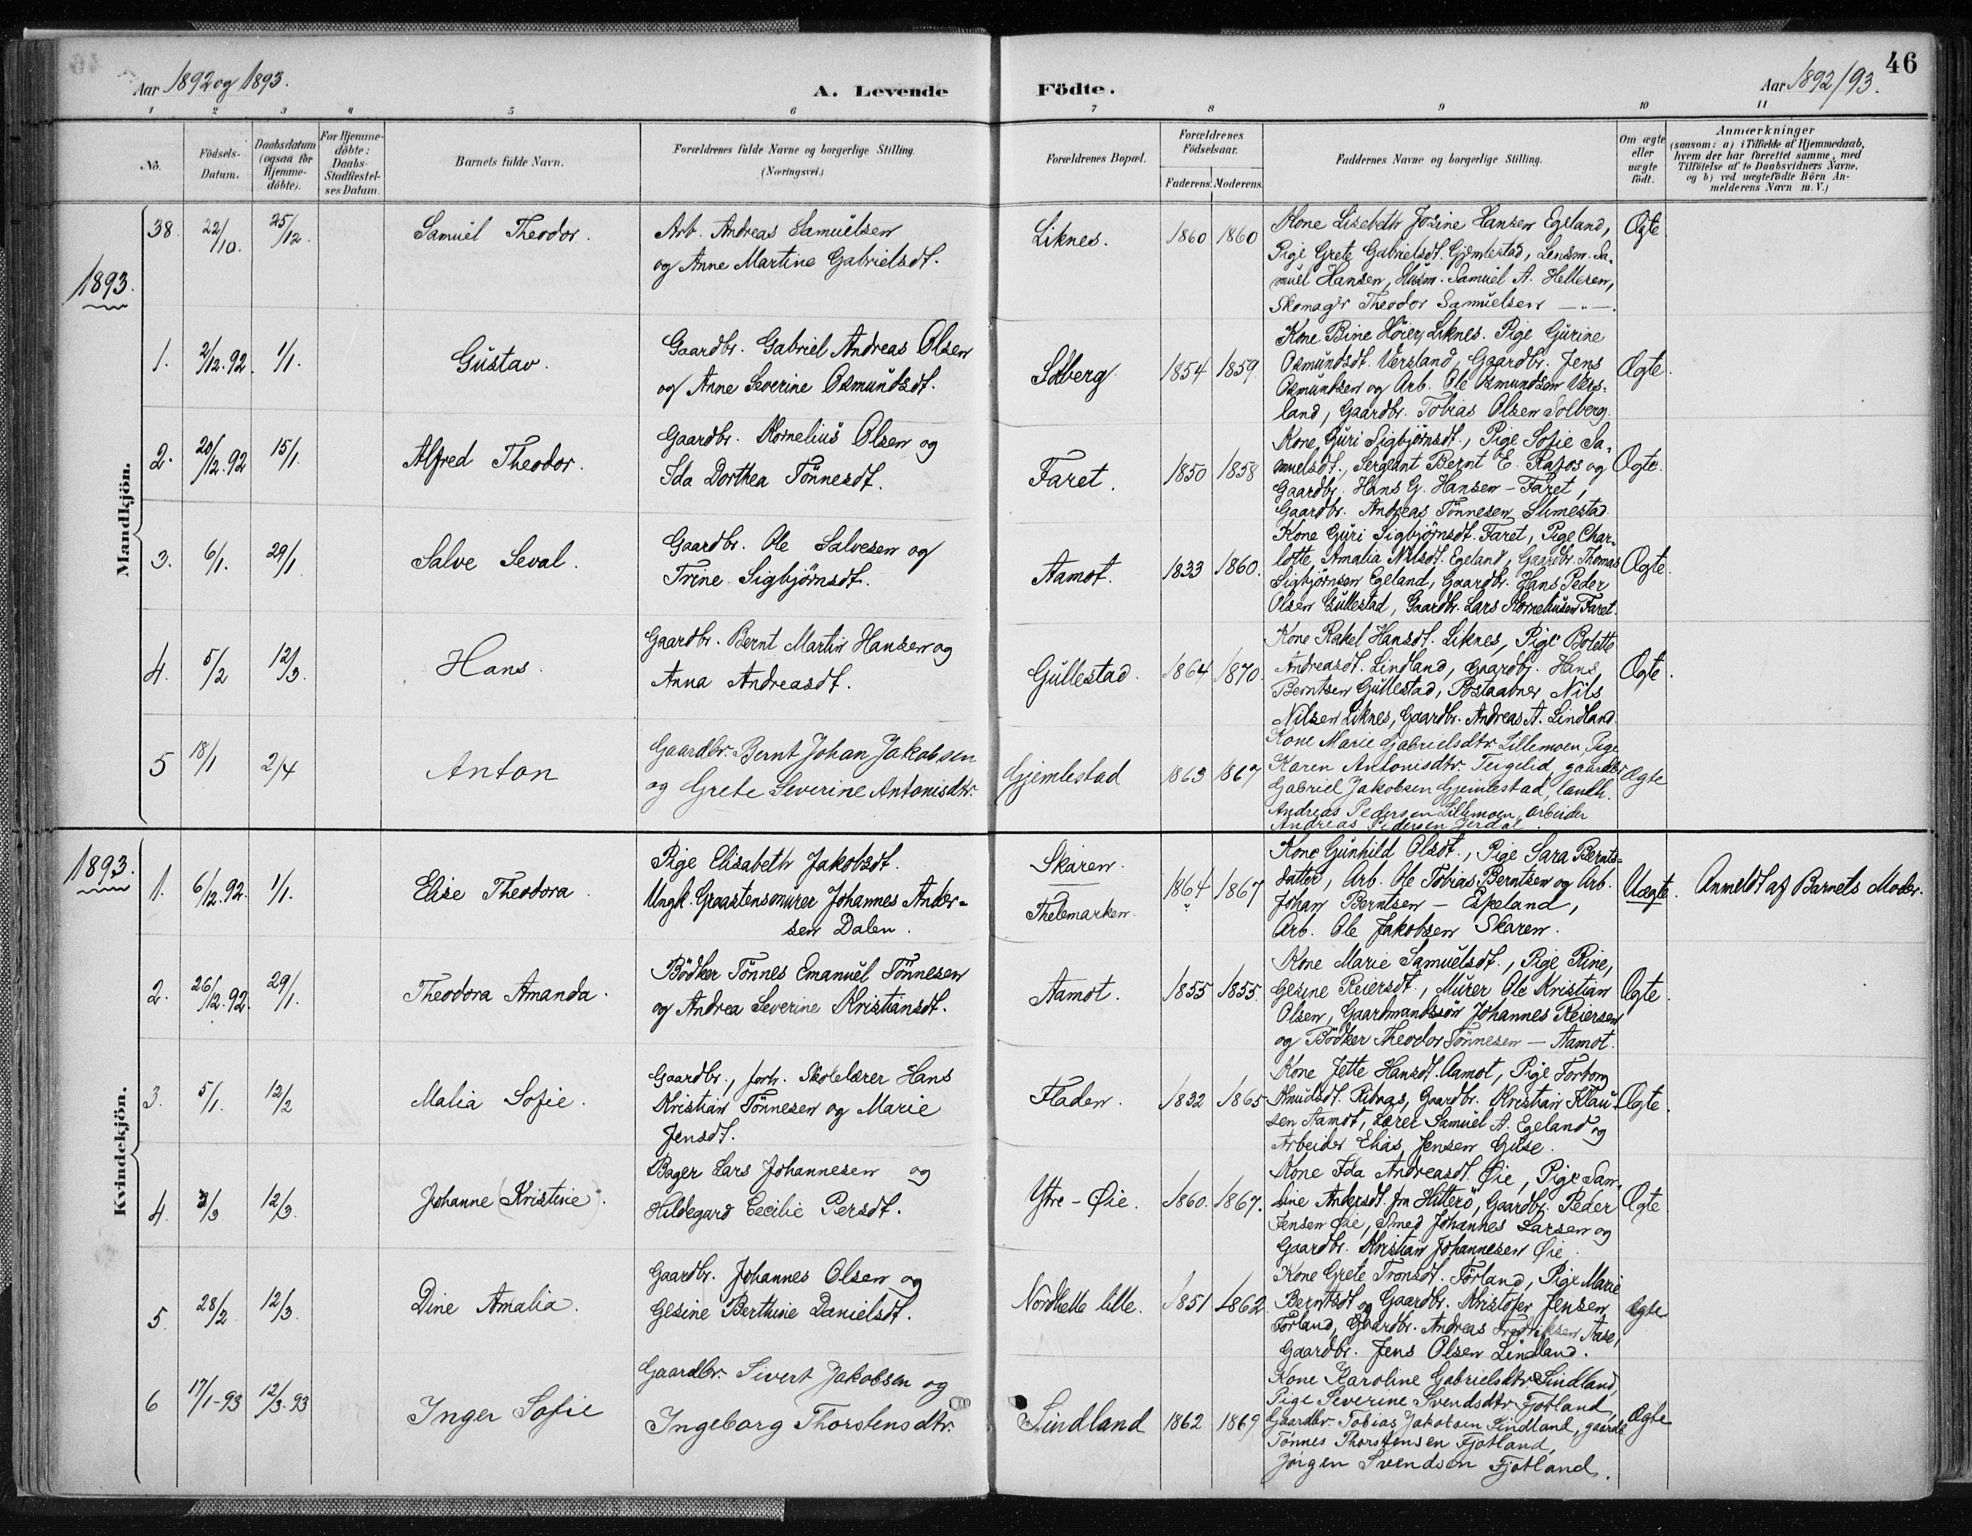 Aar 1892 og 1893.
A. Levende Födte.
Aar 1892/93.
46
1 2 3 4 5 6 7 8 9 10 11
No.
Födsels-Datum.
Daabsdatum (ogsaa for Hjemme-döbte).
For Hjemme-döbte: Daabs-Stadfæstel-ses Datum.
Barnets fulde Navn.
Forældrenes fulde Navne og borgerlige Stilling. (Næringsvei.)
Forældrenes Bopæl.
Forældrenes Födselsaar.
Faderens. Moderens.
Faddernes Navne og borgerlige Stilling.
Om ægte eller uægte födt.
Anmærkninger
(saasom: a) i Tilfælde af Hjemmedaab,
hvem der har forrettet samme, med
Tilföielse af to Daabsvidners Navne,
og b) ved uægtefödte Börn An-
melderens Navn m. V.)
Mandkjön.
38. 22/10. 25/12. Samuel Theodor.
Arb. Andreas Samuelsen
og Anne Martine Gabrielsdt.
Liknes. 1860 1860
Kone Lisebeth Josine Hansen Egeland,
Pige Grete Gabrielsdt. Gjemlestad, Lensm. Sa-
muel Hansen, Husm. Samuel A. Hellesen,
Skomagr Theodor Samuelsen — " —
Ægte
1893.
1. 2/12.92. 1/1. Gustav.
Gaardbr. Gabriel Andreas Olsen
og Anne Severine Osmundsdt.
Solberg 1854 1859.
Kone Bine Höier, Liknes. Pige Gurine
Osmundsdt. Versland, Gaardbr. Jens
Osmundsen og Arb. Ole Osmundsen Vers-
land, Gaardbr. Tobias Olsen Solberg.
Ægte.
2. 20/12.92 15/1. Alfred Theodor.
Gaardbr. Kornelius Olsen og
Ida Dorthea Tönnesdt.
Faret. 1850 1858
Kone Guri Sigbjörnsdt., Pige Sofie Sa-
muelsdt., Sergeant Bernt E. Rafos og
Gaardbr. Hans G. Hansen - Faret,
Gaardbr. Andreas Tönnesen Slimestad
Ægte.
3. 6/1. 29/1 Salve Seval.
Gaardbr. Ole Salvesen og
Trine Sigbjörnsdt.
Aamot. 1833 1860.
Kone Guri Sigbjörnsdt. Faret, Pige Char-
lotte Amalia Nilsdt. Egeland, Gaardbr. Thomas
Sigbjörnsen Egeland, Gaardbr. Hans Peder
Olsen Gullestad, Gaardbr. Lars Korneliusen Faret.
Ægte.
4. 5/2 12/3. Hans.
Gaardbr. Bernt Martin Hansen og
Anna Andreasdt.
Gullestad. 1864 1870.
Kone Rakel Hansdt. Liknes, Pige Bolette
Andreasdt. Lindland, Gaardbr. Hans
Berntsen Gullestad, Postaabner Nils
Nilsen Liknes, Gaardbr. Andreas A. Lindland.
Ægte.
5 18/1 2/4 Anton
Gaardbr. Bernt Johan Jakobsen
og Grete Severine Antonisdtr.
Gjemlestad 1863 1867
Kone Marie Gabrielsdtr Lillemoen, Pige
Karen Antonisdtr. Teigelid, gaardbr
Gabriel Jakobsen Gjemlestad, landh.
Andreas Pedersen Lillemoen, arbeider
Andreas Pedersen Jerdal.
Ægte
Kvindekjön.
1893.
1. 6/12.92. 1/1. Elise Theodora.
Pige Elisabeth Jakobsdt.
Ungk. Graastensmurer Johannes Ander-
sen Dalen.
Skaren.
Thelemarken.
1864 1867
Kone Gunhild Olsdt., Pige Sara Bernts-
datter, Arb. Ole Tobias Berntsen og Arb.
Johan Berntsen — Espeland,
Arb. Ole Jakobsen Skaren.
Uægte. Anmeldt af Barnets Moder.
2. 26/12.92. 29/1. Theodora Amanda.
Bödker Tönnes Emanuel Tönnesen
og Andrea Severine Kristiansdt.
Aamot. 1855 1855.
Kone Marie Samuelsdt., Pige Rine,
Gesine Reiersdt., Murer Ole Kristian
Olsen, Gaardmandssön Johannes Reiersen
og Bödker Theodor Tönnesen — Aamot.
Ægte.
3. 5/1. 12/2 Malia Sofie.
Gaardbr., forh. Skolelærer Hans
Kristian Tönnesen og Marie
Jensdt.
Fladen. 1832 1865
Kone Jette Hansdt. Aamot, Pige Torborg
Knudsdt. Risnes, Gaardbr. Kristian Klau-
sen Aamot, Lærer Samuel A. Egeland og
Arbeider Elias Jensen Guse.
Ægte.
4. 3/3 12/3. Johanne (Kristine).
Bager Lars Johannesen og
Hildegard Cecilie Persdt.
Ytre-Öie. 1860. 1867.
Kone Ida Andreasdt. Öie, Pige San-
dine Andersdt. fra Hitterö, Gaardbr. Peder
Jensen Öie, Smed Johannes Larsen og
Gaardbr. Kristian Johannesen Öie.
Ægte
5. 28/2 12/3. Dine Amalia.
Gaardbr. Johannes Olsen og
Gesine Berthine Danielsdt.
Nordhelle lille. 1851 1862.
Kone Grete Tronsdt. Förland, Pige Marie
Berntsdt og Gaardbr. Kristofer Jensen
Förland, Gaardbr. Andreas Fredriksen Aase,
Gaardbr. Jens Olsen Lindland.
Ægte
6 17/1-93 12/3-93 Inger Sofie
Gaardbr. Sivert Jakobsen og
Ingeborg Thorstensdtr.
Lindland 1862 1869
Kone Karoline Gabrielsdtr Lindland,
Pige Severine Svendsdtr Fjotland,
Gaardbr Tobias Jakobsen Lindland, gaardb.
Tönnes Thorstensen Fjotland,
Jörgen Svendsen Fjotland.
Ægte